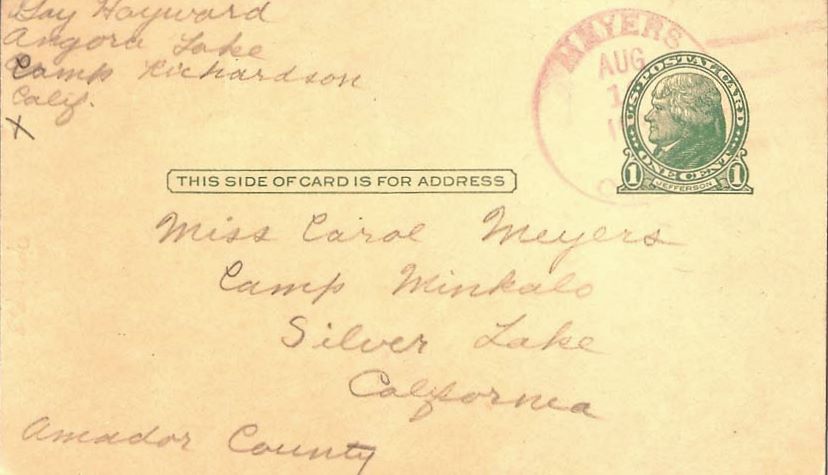 Gay Hayward
Angora Lake
Camp Richardson
Calif.
X
MEYERS
AUG
1
U.S. POSTAL CARD
ONE CENT
1 JEFFERSON 1
THIS SIDE OF CARD IS FOR ADDRESS
Miss Carol Meyers
Camp Minkalo
Silver Lake
California
Amador County